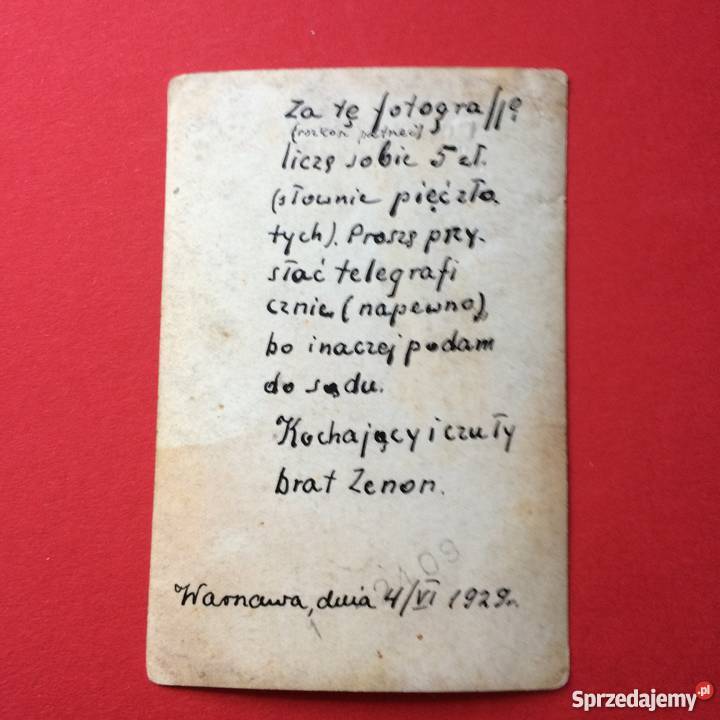 Za tę fotografję
liczę sobie 5 zł.
(słownie pięć zło
tych). Proszę przy-
słać telegrafi
cznie (napewno),
bo inaczej podam
do sądu.
Kochający i czuły
brat Zenon.
2409
Warszawa, dnia 4/VI 1929r.
Sprzedajemy.pl